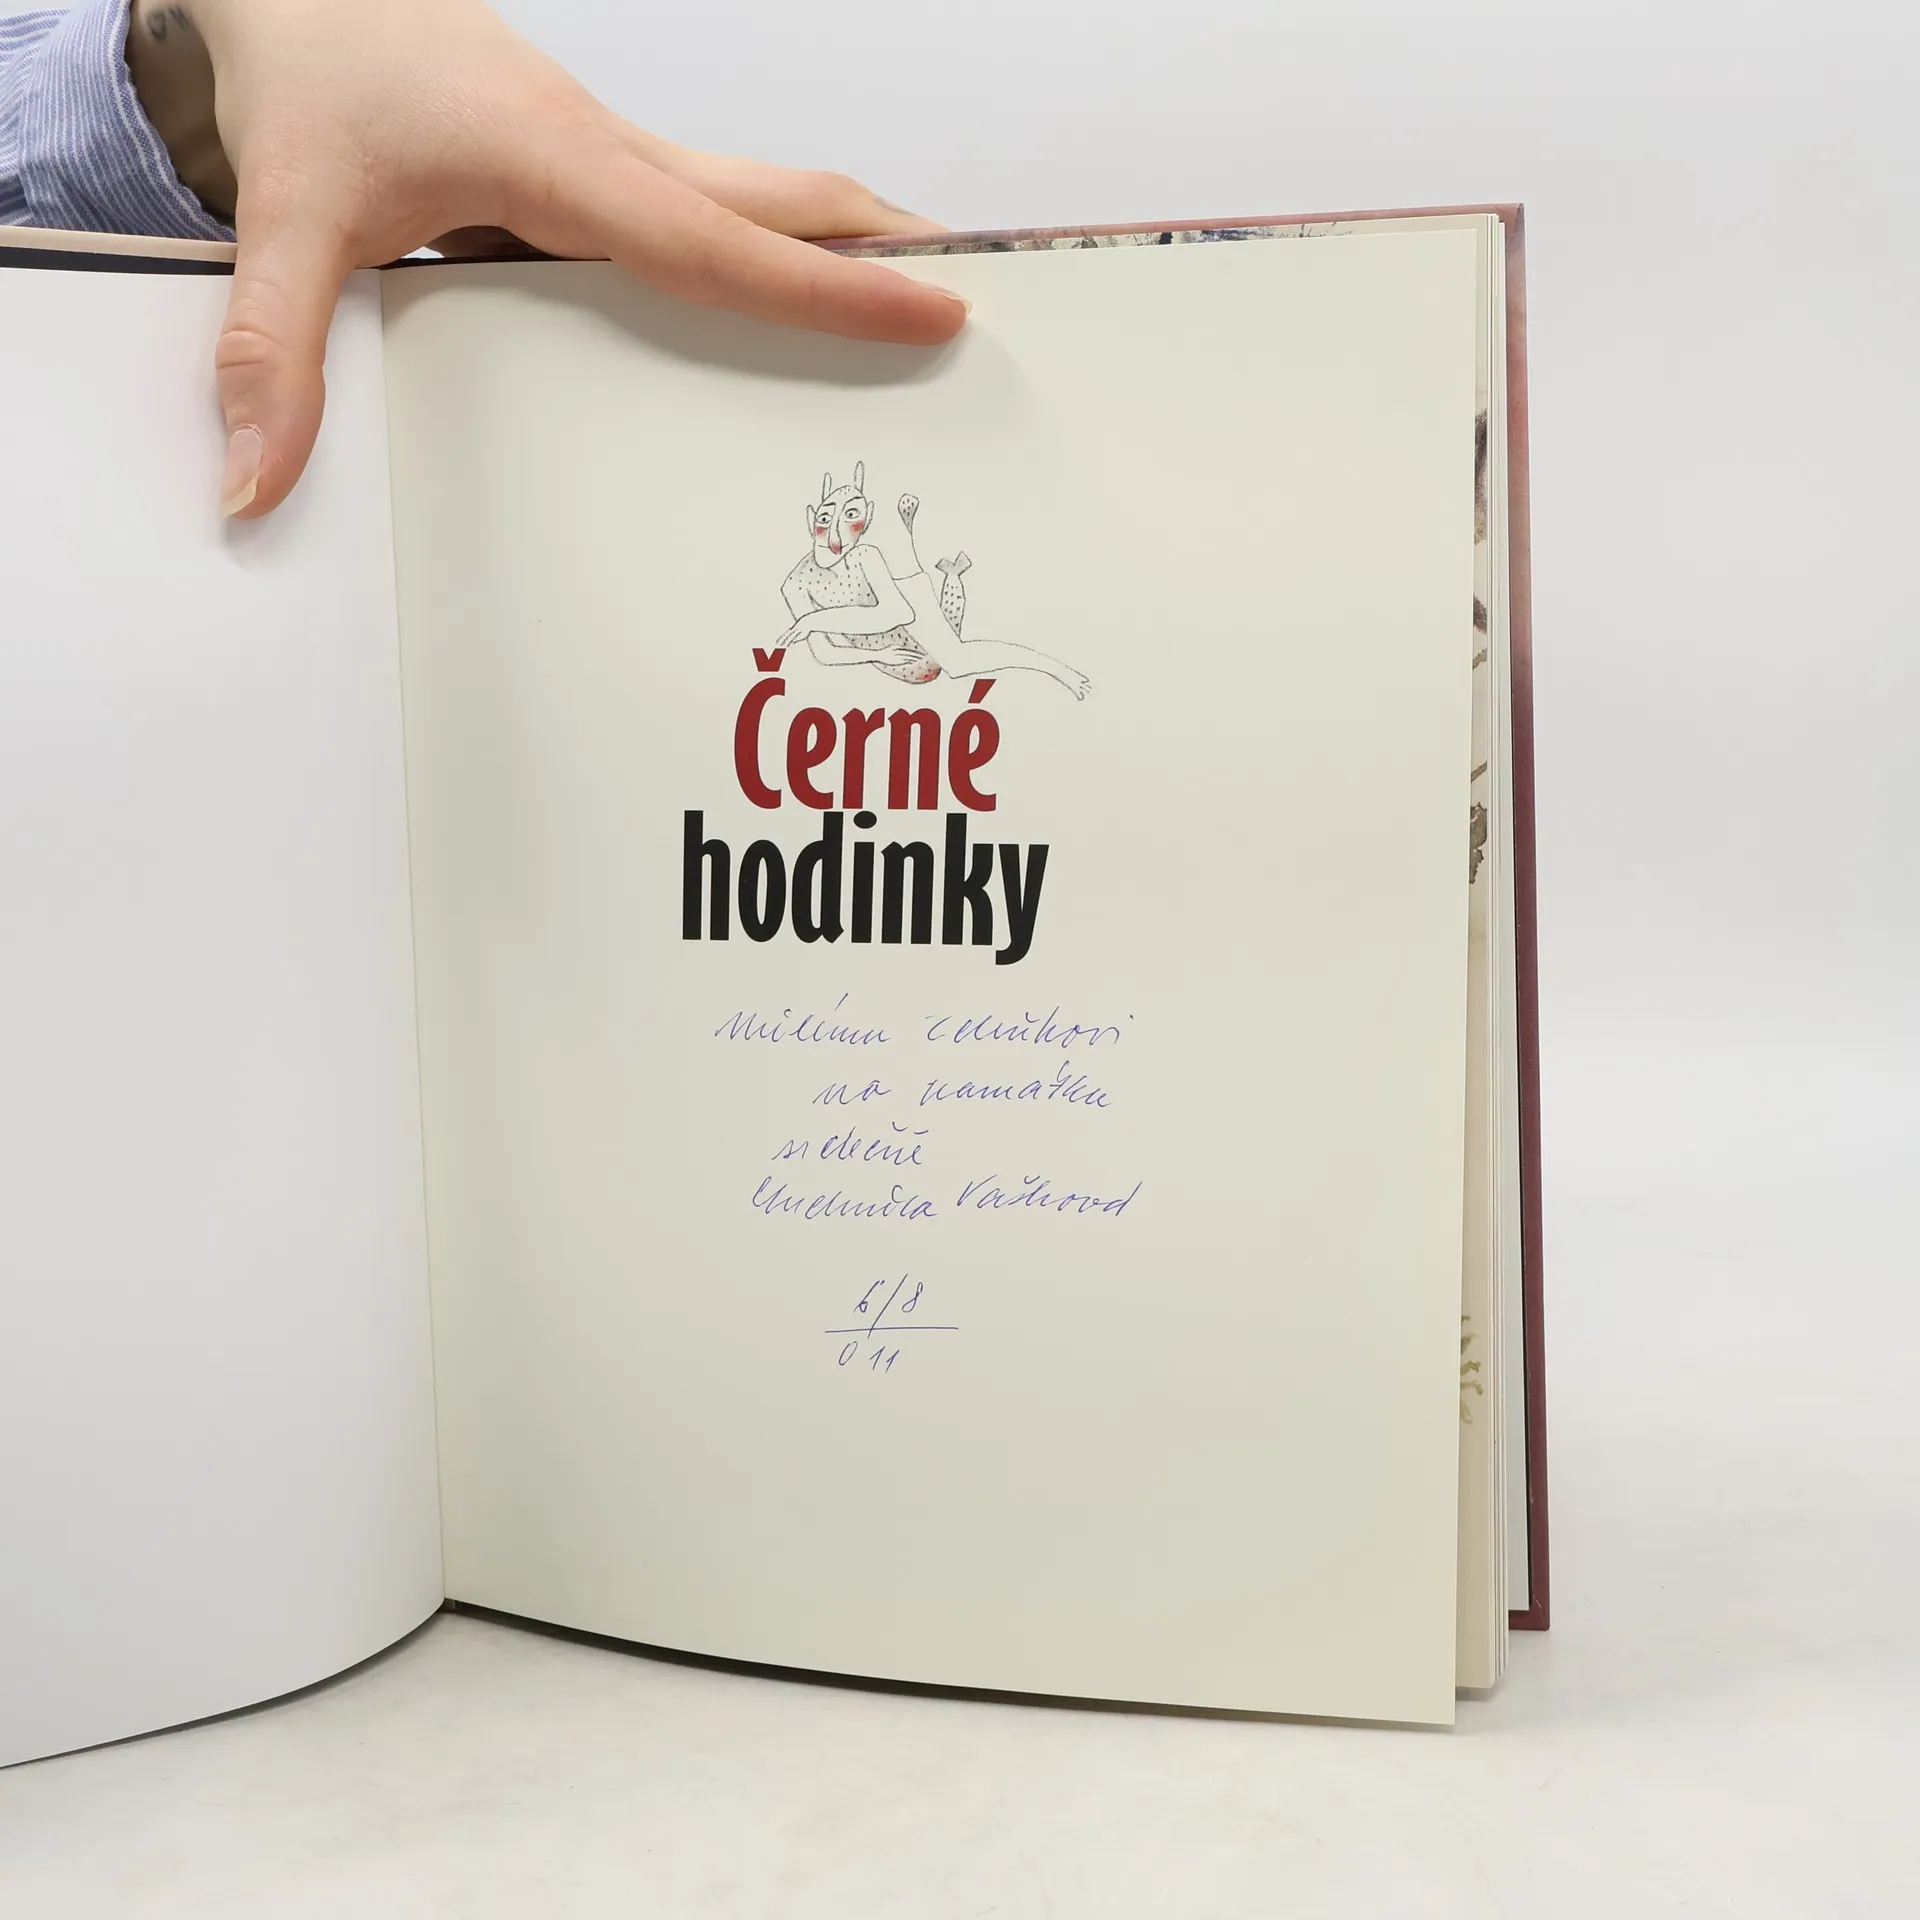 Černé
hodinky
Milému Zdeňkovi
na památku
srdečně
Ludmila Vašková
6/8
011